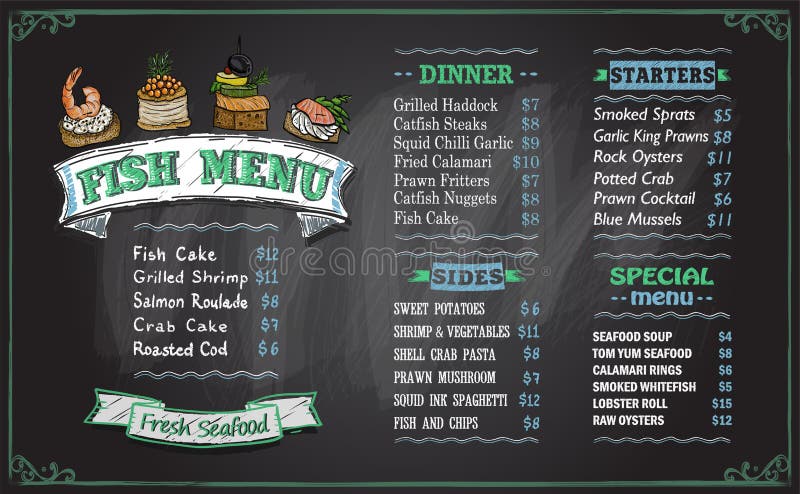 FISH MENU
Fish Cake $12
Grilled Shrimp $11
Salmon Roulade $8
Crab Cake $7
Roasted Cod $6
Fresh Seafood
-- DINNER --
Grilled Haddock $7
Catfish Steaks $8
Squid Chilli Garlic $9
Fried Calamari $10
Prawn Fritters $7
Catfish Nuggets $8
Fish Cake $8
SIDES
SWEET POTATOES $6
SHRIMP & VEGETABLES $11
SHELL CRAB PASTA $8
PRAWN MUSHROOM $7
SQUID INK SPAGHETTI $12
FISH AND CHIPS $8
STARTERS
Smoked Sprats $5
Garlic King Prawns $8
Rock Oysters $11
Potted Crab $7
Prawn Cocktail $6
Blue Mussels $11
SPECIAL
-- menu --
SEAFOOD SOUP $4
TOM YUM SEAFOOD $8
CALAMARI RINGS $6
SMOKED WHITEFISH $5
LOBSTER ROLL $15
RAW OYSTERS $12
dreamstime